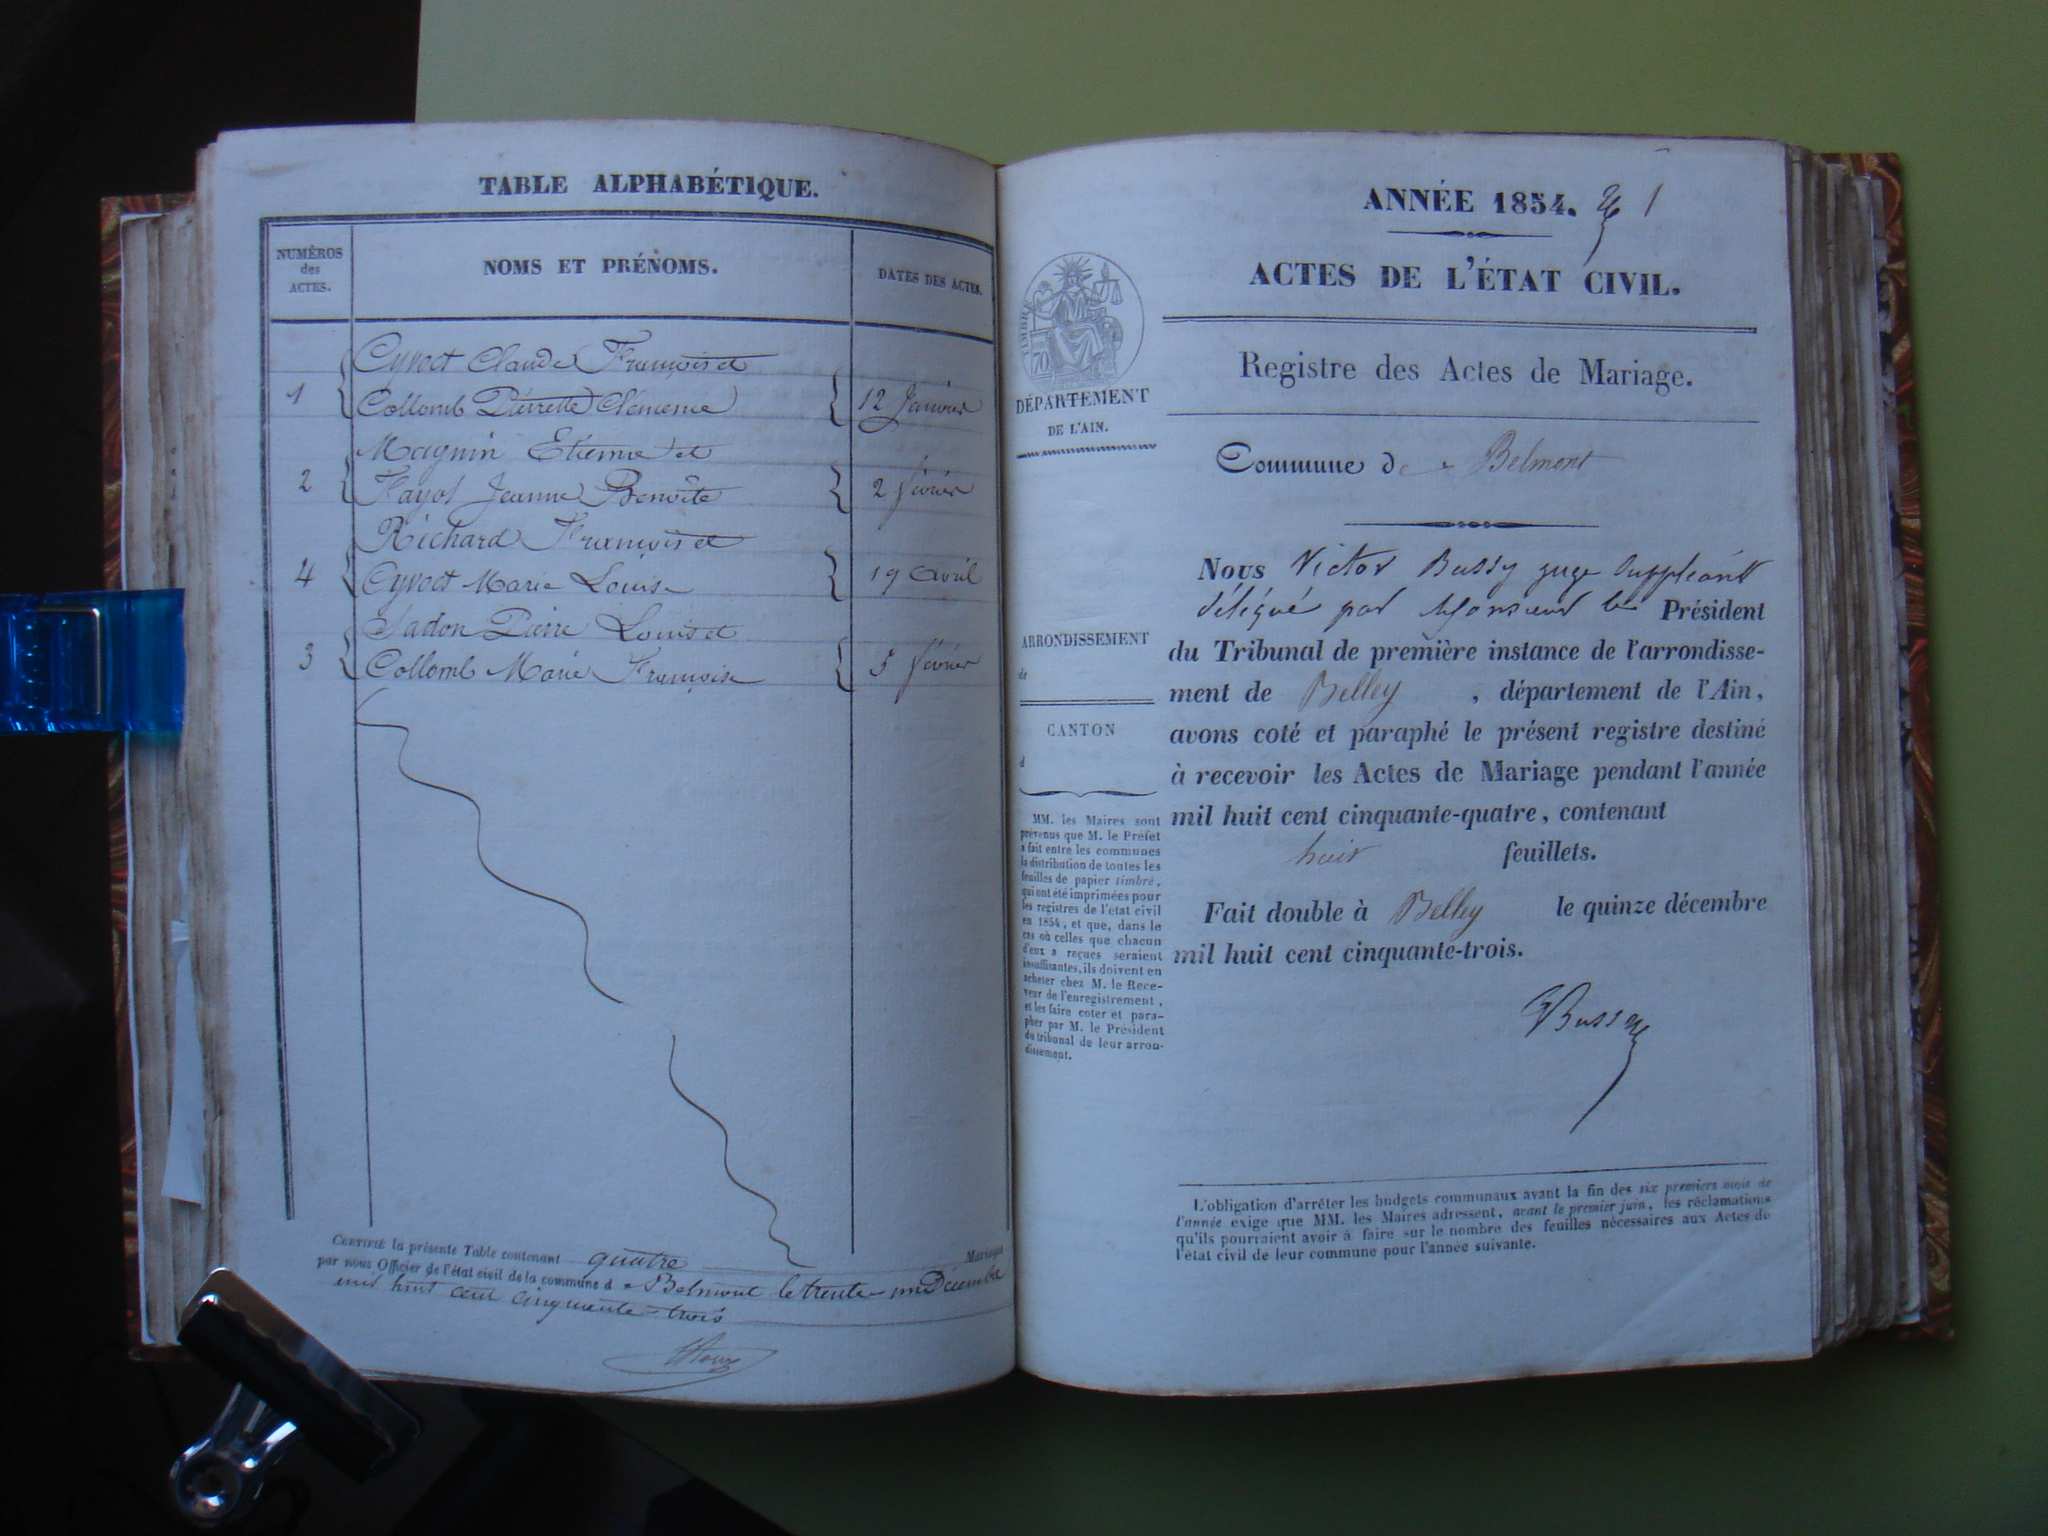 TABLE ALPHABÉTIQUE.
NUMÉROS
des
ACTES.
NOMS ET PRÉNOMS.
DATES DES ACTES.
Cyvoct Claude François et
1
Collomb Pierrette Clémence
12 Janvier
Magnin Etienne et
2
Fayol Jeanne Benoîte
2 février
Richard François et
4
Cyvoct Marie Louise
19 Avril
Pierre Louis et
3
Collomb Marie Françoise
5 février
CERTIFIÉ la présente Table contenant quatre Mariages
par nous Officier de l'état civil de la commune de Belmont le trente-un Décembre
mil huit cent cinquante-trois
ANNÉE 1854. 1
ACTES DE L'ÉTAT CIVIL.
Registre des Actes de Mariage.
TIMBRE
70
DÉPARTEMENT
DE L'AIN.
Commune de Belmont
ARRONDISSEMENT
de
CANTON
d
MM. les Maires sont
prévenus que M. le Préfet
a fait entre les communes
la distribution de toutes les
feuilles de papier timbré,
qui ont été imprimées pour
les registres de l'état civil
en 1854, et que, dans le
cas où celles que chacun
d'eux a reçues seraient
insuffisantes, ils doivent en
acheter chez M. le Rece-
veur de l'enregistrement,
et les faire coter et para-
pher par M. le Président
du tribunal de leur arron-
dissement.
Nous Victor Bussy juge Suppléant
délégué par Monsieur le Président
du Tribunal de première instance de l'arrondisse-
ment de Belley, département de l'Ain,
avons coté et paraphé le présent registre destiné
à recevoir les Actes de Mariage pendant l'année
mil huit cent cinquante-quatre, contenant
huit feuillets.
Fait double à Belley le quinze décembre
mil huit cent cinquante-trois.
VBussy
L'obligation d'arrêter les budgets communaux avant la fin des six premiers mois de
l'année exige que MM. les Maires adressent, avant le premier juin, les réclamations
qu'ils pourraient avoir à faire sur le nombre des feuilles nécessaires aux Actes de
l'état civil de leur commune pour l'année suivante.